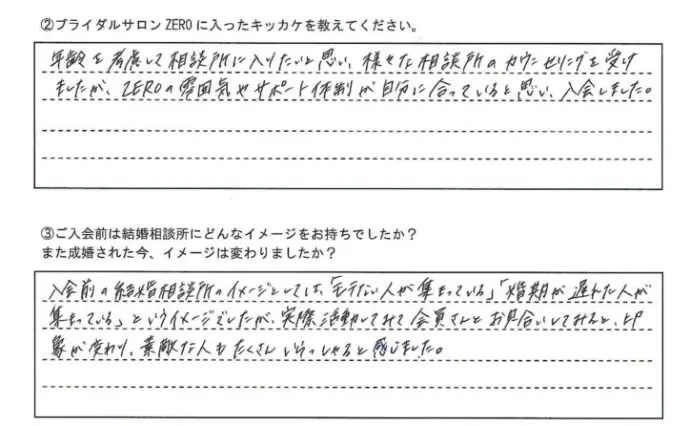 ②ブライダルサロン ZERO に入ったキッカケを教えてください。
年齢を考慮して相談所に入りたいと思い、様々な相談所のカウンセリングを受け
ましたが、ZEROの雰囲気やサポート体制が自分に合っていると思い、入会しました。
③ご入会前は結婚相談所にどんなイメージをお持ちでしたか？
また成婚された今、イメージは変わりましたか？
入会前の結婚相談所のイメージとしては、「モテない人が集まっている」「婚期が遅れた人が
集まっている」というイメージでしたが、実際活動してみて会員さんとお見合いしてみると、印
象が変わり、素敵な人もたくさんいらっしゃると感じました。